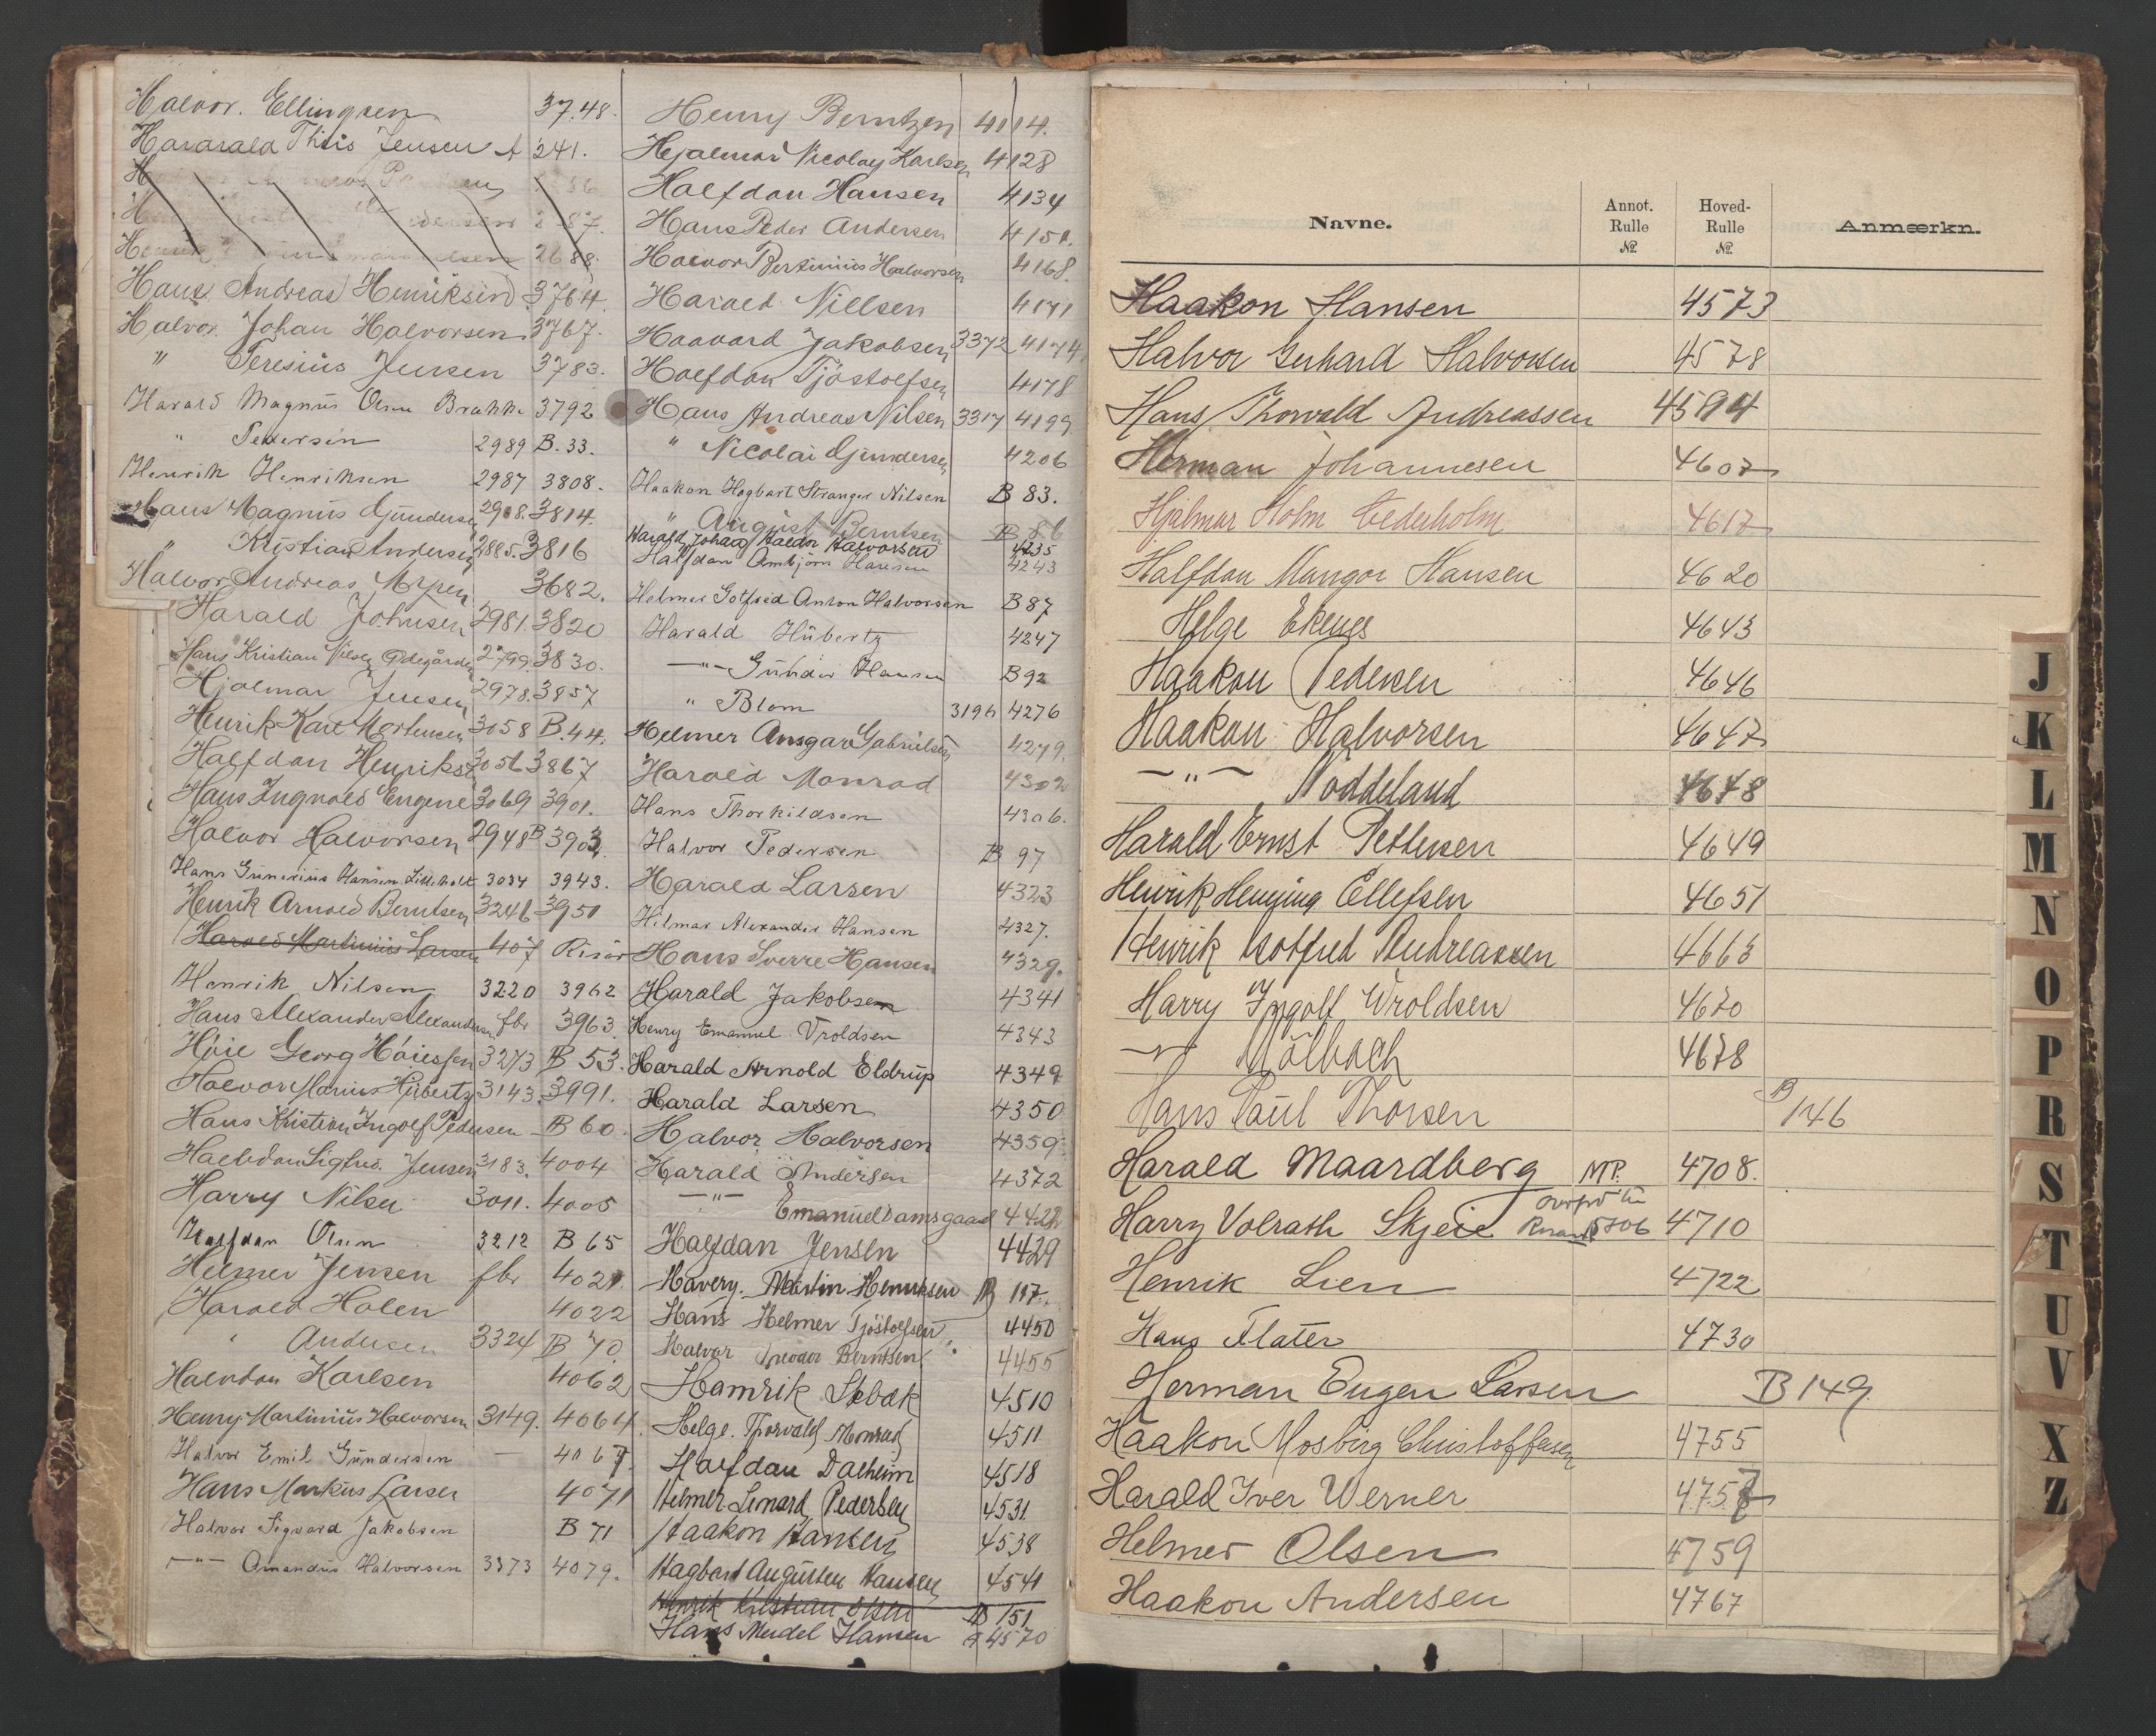 Halvor. Ellingsen 37.48.
Hararald Thiis Jensen A 241.
H
H 2 87.
H 2688.
Hans Andreas Henriksen 3764.
Halvor Johan Halvorsen 3767.
" Teresius Jensen 3783.
Harald Magnus Olsen Brakke 3792
" Pedersen 2989 B. 33.
Henrik Henriksen 2987 3808.
Hans Magnus Gundersen 2908. 3814.
" Kristian Andersen 2885. 3816
Halvor Andreas 3682.
Harald Johnsen 2981. 3820
Hans Kristian Nilsen Ødegården 2799. 3830.
Hjalmar Jensen 2978. 3857
Henrik Karl Mortensen 3058 B. 44.
Halfdan Henriksen 3056 3867
Hans Ingvald Eugene 3069 3901.
Halvor Halvorsen 2948 B 3903.
Hans Grunerius Hansen Lilleholt 3034 3943.
Henrik Arnold Berntsen 3246 3951
Harald Martinius Larsen 407 Risør
Henrik Nilsen 3220 3962
Hans Alexander Alexandersen fbr 3963
Høie Georg Høiessen 3273 B 53.
Halvor Marius Hubertz 3143. 3991.
Hans Kristian Ingolf Pedersen B 60.
Halvdan Sigfred. Jensen 3183. 4004
Harry Nilsen 3011. 4005
Halfdan Olsen 3212 B 65
Helmer Jensen fbr 4021.
Harald Holen 4022
" Andersen 3324 B 70
Halvdan Karlsen 4062
Henry Martinius Halvorsen 3149. 4064
Halvor Emil Gundersen — 4067
Hans Markus Larsen 4071
Halvor Sigvard Jakobsen B 71
—"— Amandus Halvorsen 3373 4079.
Henry Berntzen 4114.
Hjalmar Nicolay Karlsen 4128
Halfdan Hansen 4134
Hans Peder Andersen 4151.
Halvor Bertinius Halvorsen 4168.
Harald Nillsen 4171
Haavard Jakobsen 3372 4174
Halfdan Tjøstolfsen 4178
Hans Andreas Nilsen 3317 4199
" Nicolai Gundersen 4206
Haakon Hagbart Stranger Nilsen B 83.
" August Berntsen B 86
Harald Johan Haldor Halvorsen 4235
Halfdan Arnbjørn Hansen 4243
Helmer Gotfred Anton Halvorsen B 87
Harald Hübertz 4247
—"— Gunder Hansen B 92
" Blom 3196 4276
Helmer Ansgar Gabrielsen 4279.
Harald Monrad 4302
Hans Thorkildsen 4306.
Halvor Pedersen B 97
Harald Larsen 4323
Hilmar Alexander Hansen 4327.
Hans Sverre Hansen 4329.
Harald Jakobsen 4341
Henry Emanuel Vroldsen 4343
Harald Arnold Eldrup 4349
Harald Larsen 4350
Halvor Halvorsen 4359
Harald Andersen 4372
—"— Emanuel Damsgaard 4428
Halfdan Jensen 4429
Havery. Martin Henriksen B 117.
Hans Helmer Tjøstolfsen 4450
Halvor Theodor Berntsen 4455
Hamrik Stebak 4510
Helge. Thorvald Monrad 4511
Halfdan Dalheim 4518
Helmer Lenard Pedersen 4531
Haakon Hansen 4538
Hagbart Augustin Hansen 4541
Henrik Kristian Olsen B 151
Hans Meidel Hansen 4570
Navne. Annot. Rulle № Hoved-Rulle № Anmærkn.
Haakon Hansen 4573
Halvor Gerhard Halvorsen 4578
Hans Thorvald Andreassen 4594
Herman Johannesen 4607
Hjalmar Holm Cederholm 4617
Halfdan Mangor Hansen 4620
Helge Ekenes 4643
Haakon Pedersen 4646
Haakon Halvorsen 4647
—"— Noddeland 4648
Harald Ernst Pettersen 4649
Henrik Henning Ellefsen 4651
Henrik Gotfred Andreassen 4663
Harry Ingolf Wroldsen 4670
—"— Mölbach 4678
Hans Paul Thorsen B 146
Harald Maardberg MP. 4708.
Harry Volrath Skjeie 4710
Henrik Lien 4722
Hans Flater 4730
Herman Eugen Larsen B 149
Haakon Mosberg Christoffersen 4755
Harald Iver Werner 4757
Helmer Olsen 4759
Haakon Andersen 4767
J
K
L
M
N
O
P
R
S
T
U
V
X
Z